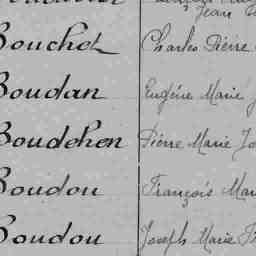 Jean
Bouchet Charles Pierre
Boudan Eugène Marie
Boudehen Pierre Marie
Boudou François
Boudou Joseph Marie